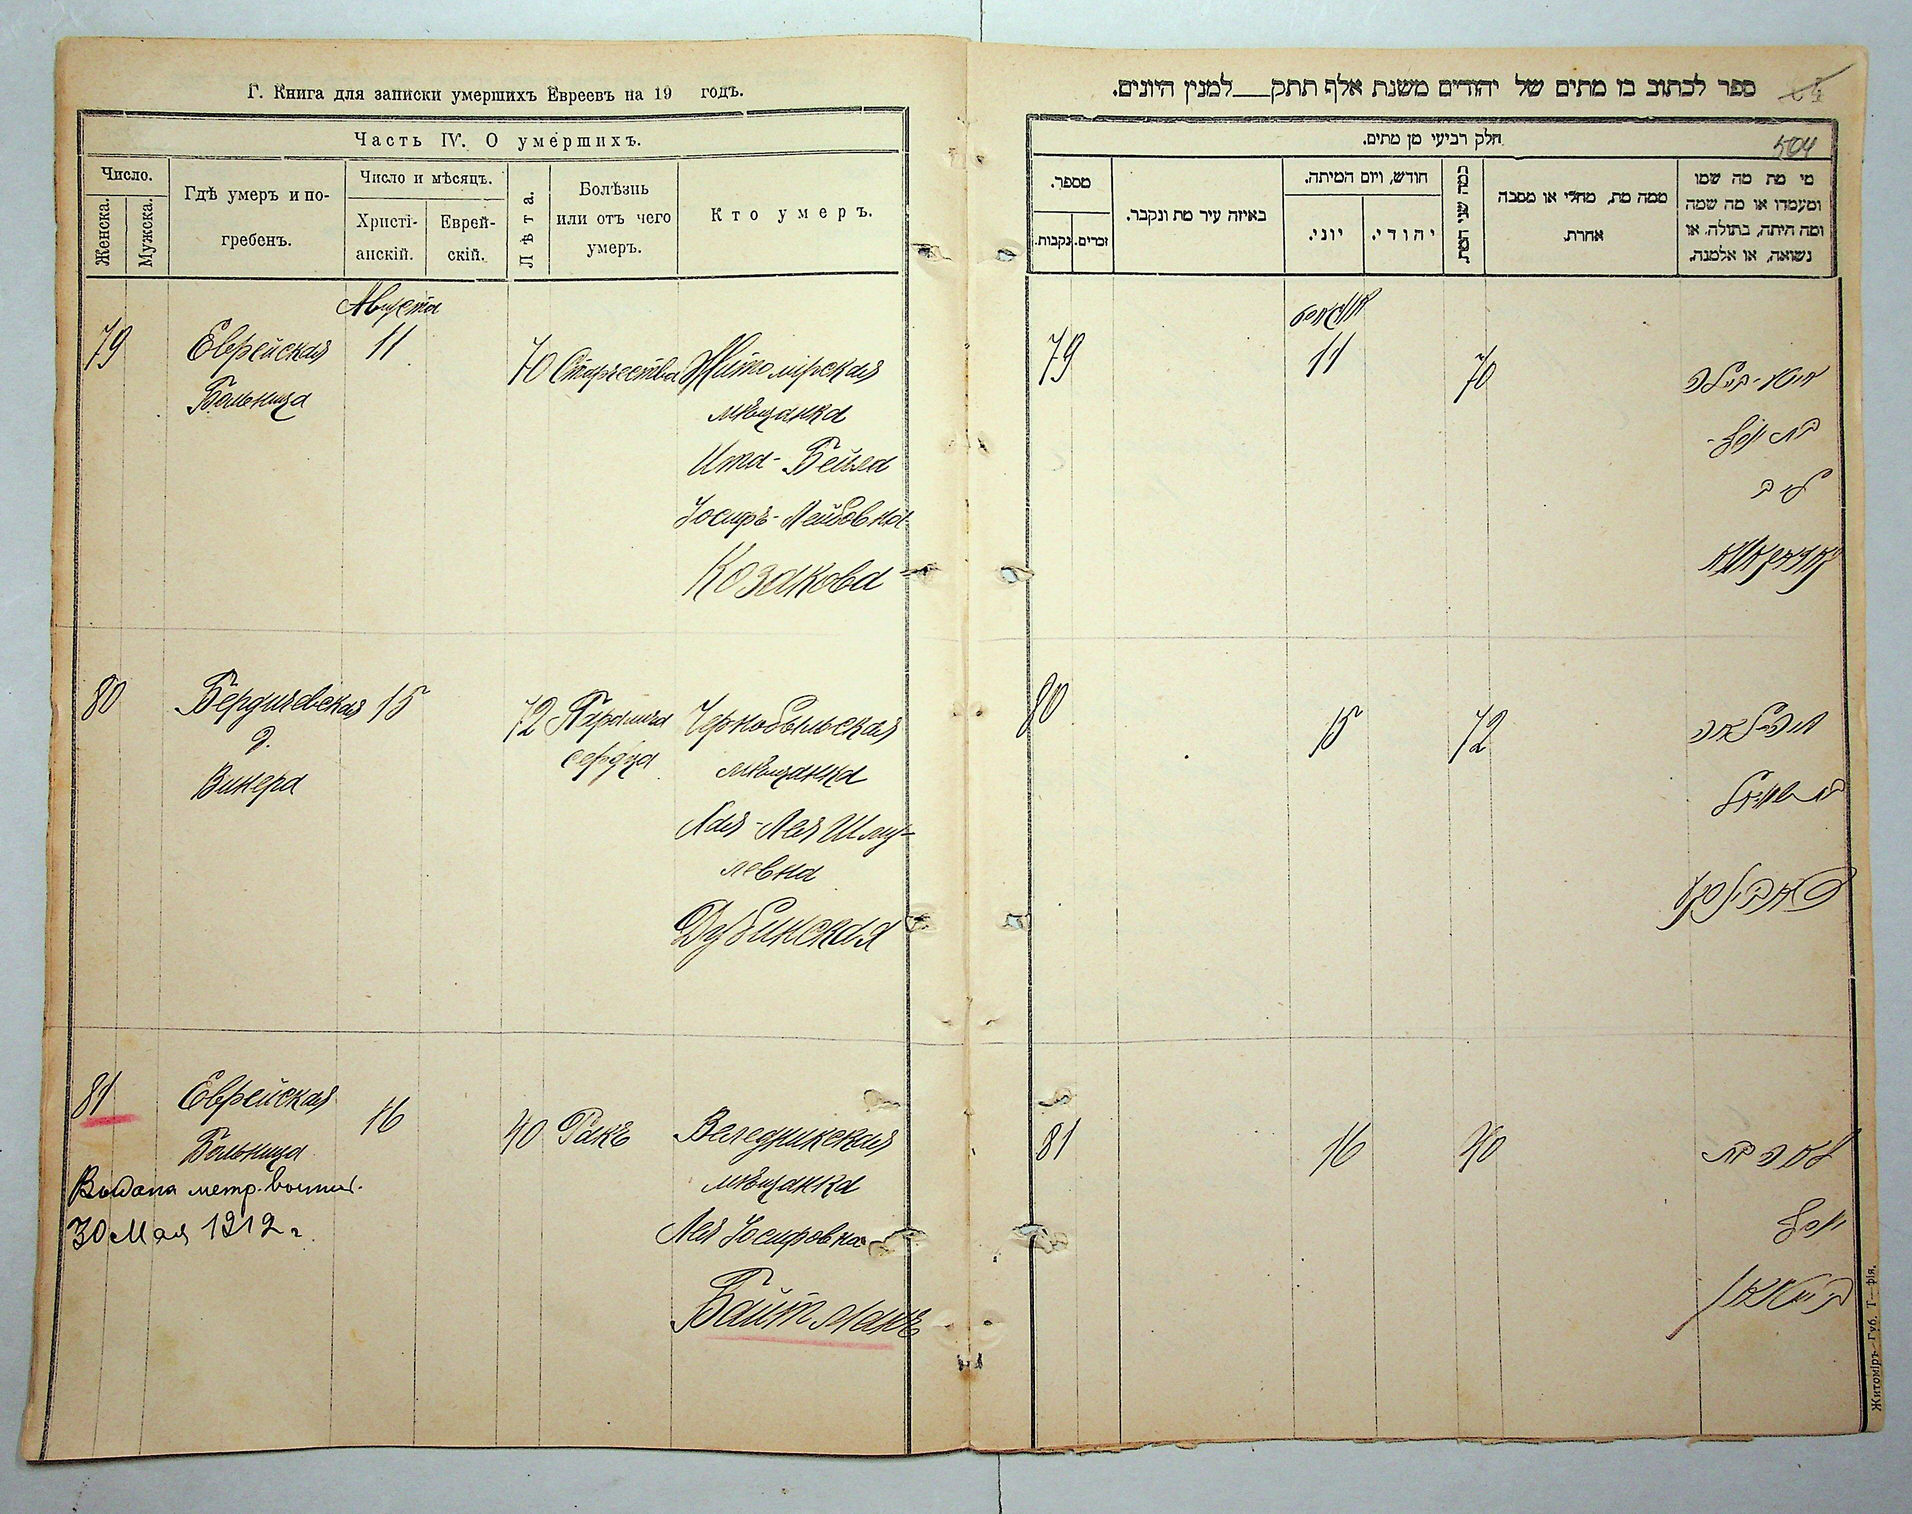 Г. Книга для записки умершихъ Евреевъ на 19 годъ.
Часть IV. О умершихъ.
Число.
Женска.
Мужска.
Гдѣ умеръ и по-
гребенъ.
Число и мѣсяцъ.
Христі-
анскій.
Еврей-
скій.
Лѣта.
Болѣзнь
или отъ чего
умеръ.
Кто умеръ.
Августа
79
Еврейская
Больница
11
70
Старчества
Житомірская
мѣщанка
Ита-Бейла
Іосифъ-Лейбовна
Козакова
80
Бердичевская
д.
Винера
15
72
сердца
Чернобыльская
мѣщанка
Хая-Лея Шму-
левна
Дубинская
81
Еврейская
Больница
16
40
Ракъ
Веледникская
мѣщанка
Лея Іосифовна
Байтманъ
Выдана метр.
30 Мая 1912 г.
ספר לכתוב בו מתים של יהודים משנת אלף תתק___למנין היונים.
504
חלק רביעי מן מתים.
מספר.
נקבות.
זכרים.
באיזה עיר מת ונקבר.
חודש, ויום המיתה.
יוני.
יהודי.
כמה שני המת.
ממה מת, מחלי או מסבה
אחרת.
מי מת מה שמו
ומעמדו או מה שמה
ומה היתה, בתולה, או
נשואה, או אלמנה.
אווגוסט
79
11
70
איטא-ביילא
בת יוסף-
ליב
80
15
72
בת שמואל
81
16
40
לאה בת
יוסף
בייטמאן
Житоміръ—Губ. Т—фія.